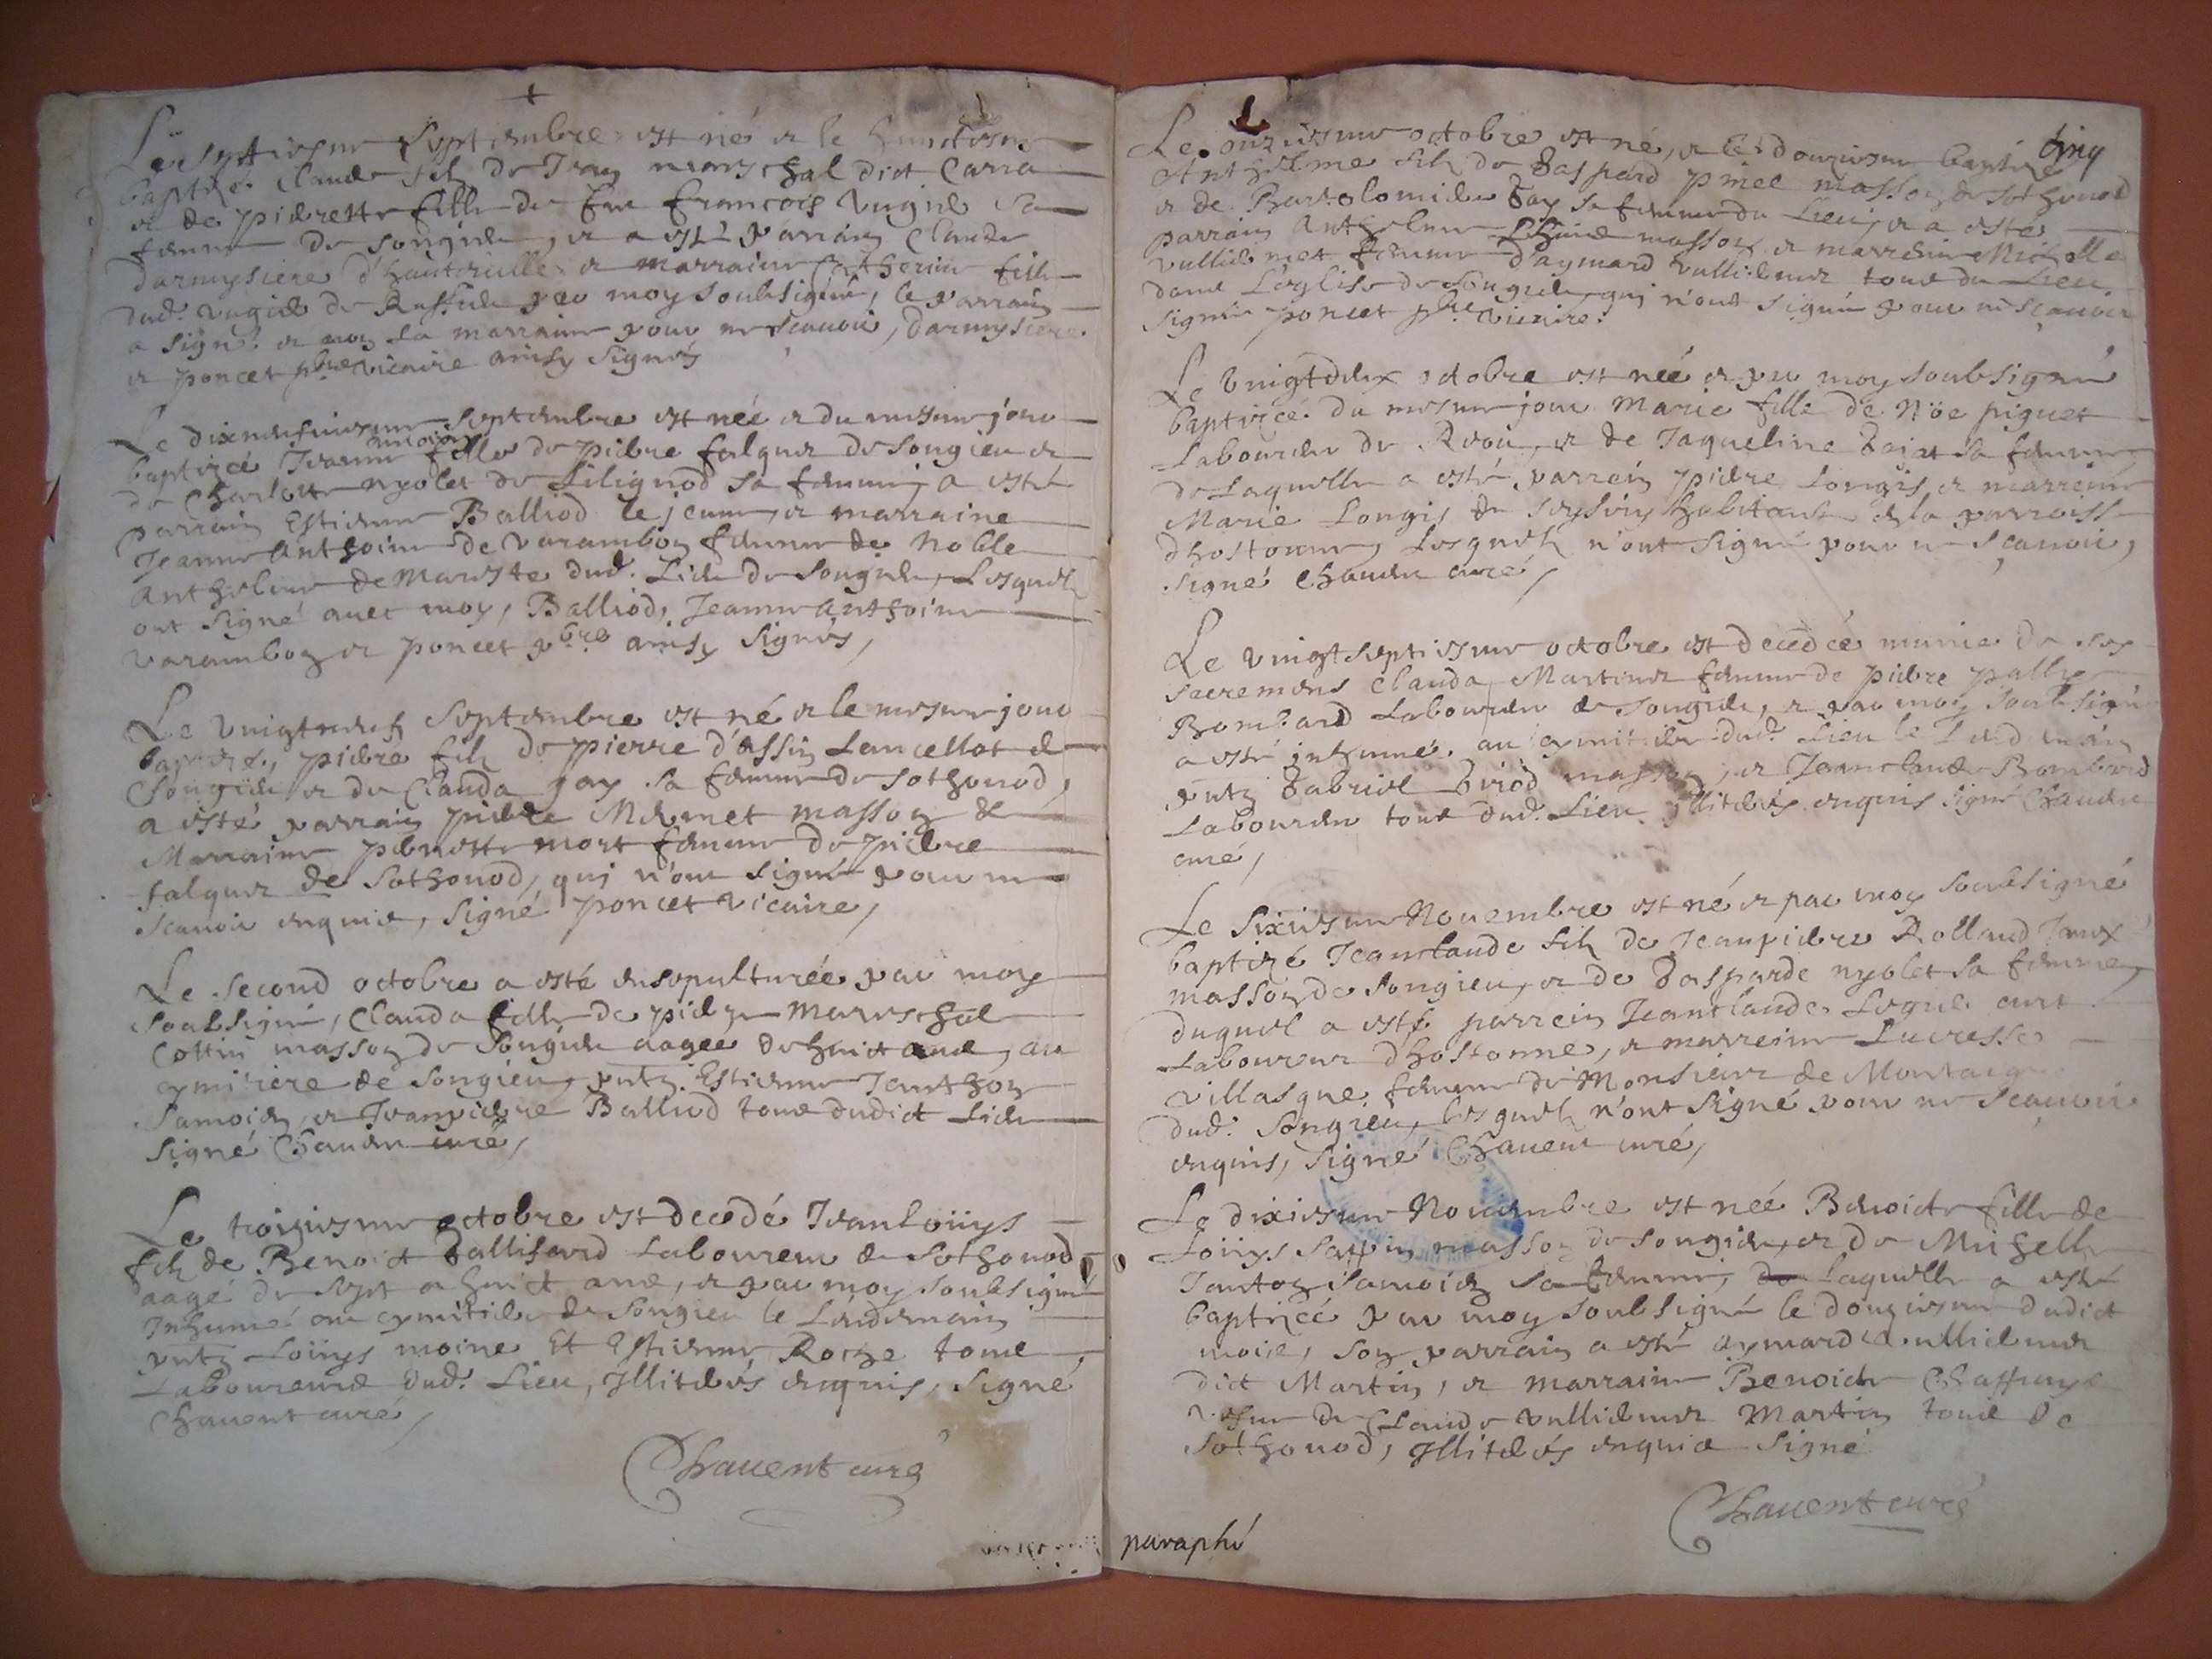 Le septiesme Septembre est né et le huictiesme
baptizé Claude filz de Jean mareschal dict Carra
et de pierrette fille de feu francois vugied sa
femme de Songieu, et a esté parrain Claude
darmysiere d'hauteuille et marraine Catherine fille
dud. vugied de Ruffieu par moy soubsigné, le parrain
a signé et non la marraine pour ne scauoir, darmysiere
et poncet pbre vicaire ainsy signés
Le dixneufuiesme Septembre est née et du mesme jour
baptizée Jeanne anthoine fille de pierre falquet de Songieu et
de Charlotte nyolet de Lilignod sa femme, a esté
parrain Estienne Balliod le jeune, et marraine
Jeanne Anthoine de varambon femme de Noble
Anthelme de Mareste dud. Lieu de Songieu, Lesquelz
ont signé auec moy, Balliod, Jeanne Anthoine
varambon et poncet pbre ainsy signés,
Le vingtneuf Septembre est né et le mesme jour
baptizé, pierre filz de pierre d'assin Lancellot de
Songieu et de Clauda gay sa femme de Sothonod,
a esté parrain pierre Mermet masson &
Marraine pernette mort femme de pierre
falquet de Sothonod, qui n'ont signé pour ne
scauoir enquis, signé poncet vicaire,
Le second octobre a esté ensepulturée par moy
soubsigné, Clauda fille de pierre Mareschal
Cottin masson de Songieu aagée de huict ans, au
cymitiere de Songieu, pntz Estienne Janthon
Samoin, et Jeanpierre Balliod tous dudict Lieu
signé Chauent curé,
Le troisiesme octobre est decedé Jeanloüys
filz de Benoict Gallifard Laboureur de Sothonod
aagé de sept a huict ans, et par moy soubsigné
Inhumé au cymitier de Songieu le Lendemain
pntz Loüys moine Et Estienne Roche tous
Laboureurs dud. Lieu, Illiterés enquis, signé
Chauent curé,
Chauent curé
Le onziesme octobre est né, et le douziesme baptizé
cinq
Anthelme filz de Gaspard pinee masson de Sothonod
et de Bartolomide Gay sa femme du Lieu, et a esté
parrain Anthelme masson et marraine Michelle
vulliemet femme d'aymard vulliemet tous du Lieu
dans L'eglise de Songieu, qui n'ont signé pour ne scauoir
signé poncet pbre vicaire.
Le vingtdeux octobre est née et par moy soubsigné
baptizée du mesme jour Marie fille de Nöe piguet
Laboureur de , et de Jaqueline sa femme
de Laquelle a esté parrein pierre Longis et marreine
Marie Longis de habitants de la parroisse
dhostonne, Lesquelz n'ont signé pour ne sçauoir,
signé Chauent curé,
Le vingtseptiesme octobre est decedée munie de ses
sacremens Clauda Martinet femme de pierre
Bombard Laboureur de Songieu, et par moy soubsigné
a esté inhumée au cymitier dud. Lieu le Lendemain
pntz Gabriel masson, et Jeanclaude Bombard
Laboureur tous dud. Lieu Illiterés enquis signé Chauent
curé,
Le Sixiesme Nouembre est né et par moy soubsigné
baptizé Jeanclaude filz de Jeanpierre Rolland
masson de Songieu, et de Gasparde nyolet sa femme,
duquel a esté parrein Jeanclaude
Laboureur dhostonne, et marreine Lucresse
villasque femme de Monsieur de
dud. Songieu, lesquelz n'ont signé pour ne scauoir
enquis, signé Chauent curé,
Le dixiesme Nouembre est née Benoicte fille de
Loüys Sappin masson de Songieu, et de Michelle
Janton Samoin sa femme, laquelle a esté
baptizée par moy soubsigné le douziesme dudict
mois, son parrain a esté aymard vulliemet
dict Martin, et marraine Benoicte
de Claude vulliemet Martin tous de
Sothonod, Illiterés enquis signé
Chauent curé
paraphé